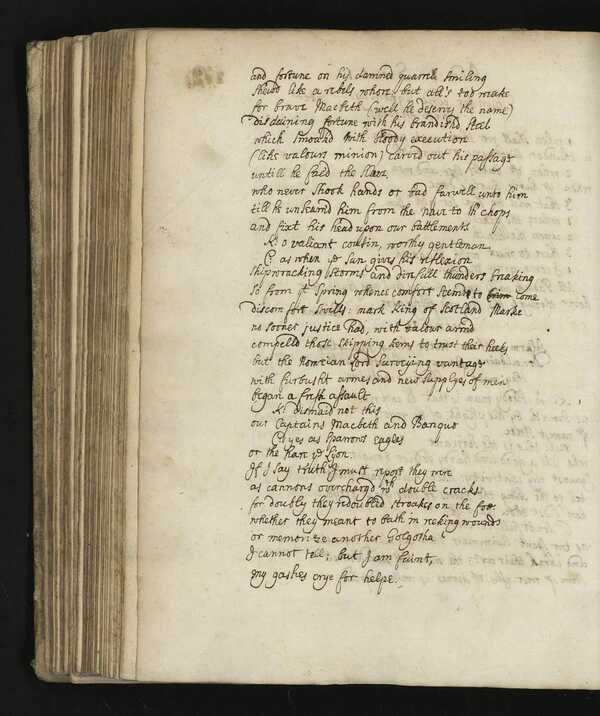 and fortune on his damned quarrell smiling
shewd like a rebels whore, but all's too weake
for brave Macbeth (well he deserves the name)
disdaining fortune with his brandisht steel
which smoakd with bloody execution
(like valours minion) carved out his passage
untill he facd the slave
who never shook hands or bad farwell unto him
till he unseamd him from the nave to th' chops
and fixt his head upon our battlements
K: o valiant cousin, worthy gentleman
C: as when ye sun gives his reflexion
shipwracking storms and direfull thunders breaking
so from yt spring whence comfort seemd to come
discomfort swells: mark king of Scotland Marke
no sooner justice had, with valour armd
compelld those skipping kerns to trust their heels
but the Norweian lord surveying vantage
with furbusht armes and new supplyes of men
began a fresh assault
K: dismaid not this
our Captains Macbeth and Banquo
C: yes as sparrows eagles
or the hare ye Lyon.
If I say truth I must report they were
as cannons overchargd wth double cracks
for doubly they redoubled stroakes on the foe
whether they meant to bath in reeking wounds
or memorize another Golgotha
I cannot tell; but I am faint,
my gashes crye for helpe.